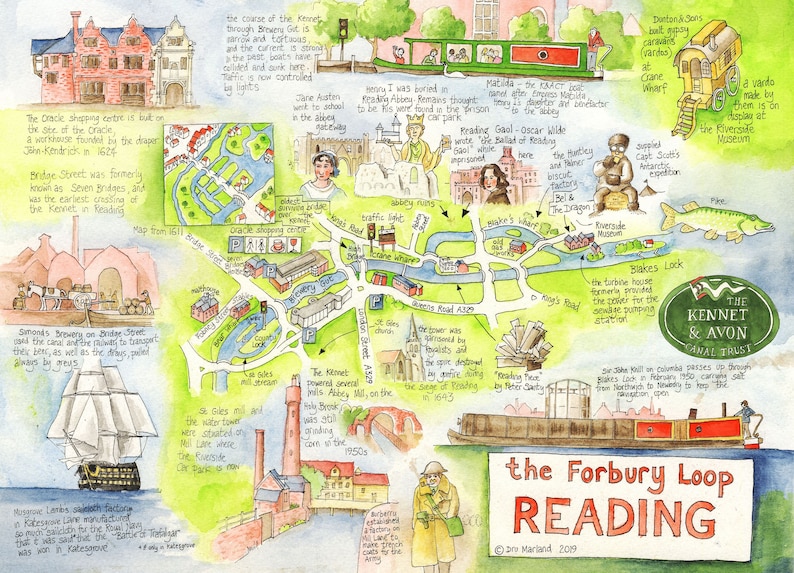 the course of the Kennet
through Brewery Gut is
narrow and tortuous,
and the current is strong
in the past boats have
collided and sunk here.
Traffic is now controlled
by lights.
Matilda - the K&ACT boat
named after Empress Matilda
Henry I's daughter and benefactor
to the abbey
Dunton & Sons
built gypsy
caravans
(vardos)
at
Crane
Wharf
a vardo
made by
them is on
display at
the Riverside
Museum
The Oracle shopping centre is built on
the site of the Oracle,
a workhouse founded by the draper
John Kendrick in 1624
Bridge Street was formerly
known as Seven Bridges, and
was the earliest crossing of
the Kennet in Reading
Map from 1611
Jane Austen
went to school
in the abbey
gateway
Henry I was buried in
Reading Abbey. Remains thought
to be his were found in the prison
car park
abbey ruins
Reading Gaol - Oscar Wilde
wrote "the Ballad of Reading
Gaol" while here
imprisoned
the Huntley
and Palmer
biscuit
factory
supplied
Capt Scott's
Antarctic
expedition
Bel &
The Dragon
Riverside
Museum
Pike
oldest
surviving bridge
over the
Kennet
Oracle shopping centre
King's Road
traffic light
Abbey
Street
Blake's Wharf
High
Bridge
Crane Wharf
old
gas
works
Bridge Street
seven
bridges
house
Brewery Gut
malthouse
Fobney Street
County
Lock
Queens Road A329
King's Road
London Street A329
Blakes Lock
the turbine house
formerly provided
the power for the
sewage pumping
station
THE
KENNET
& AVON
CANAL TRUST
Simonds Brewery on Bridge Street
used the canal and the railways to transport
their beer, as well as the drays, pulled
always by greys
St Giles
mill stream
St Giles
church
the tower was
garrisoned by
Royalists and
the spire destroyed
by gunfire during
the siege of Reading
in 1643
Reading Piece
by Peter Santy
The Kennet
powered several
mills. Abbey Mill, on the
Holy Brook
was still
grinding
corn in the
1950s
St Giles mill and
the water tower
were situated on
Mill Lane where
the Riverside
Car park is now
Sir John Knill on Columba passes up through
Blakes Lock in February 1950 carrying salt
from Northwich to Newbury to keep the
navigation open
Musgrove Lamb's sailcloth factory
in Katesgrove Lane manufactured
so much sailcloth for the Royal Navy
that it was said that the "Battle of Trafalgar
was won in Katesgrove"
* if only in Katesgrove
Burberry
established
a factory on
Mill Lane to
make trench
coats for the
Army
the Forbury Loop
READING
© Dru Marland 2019